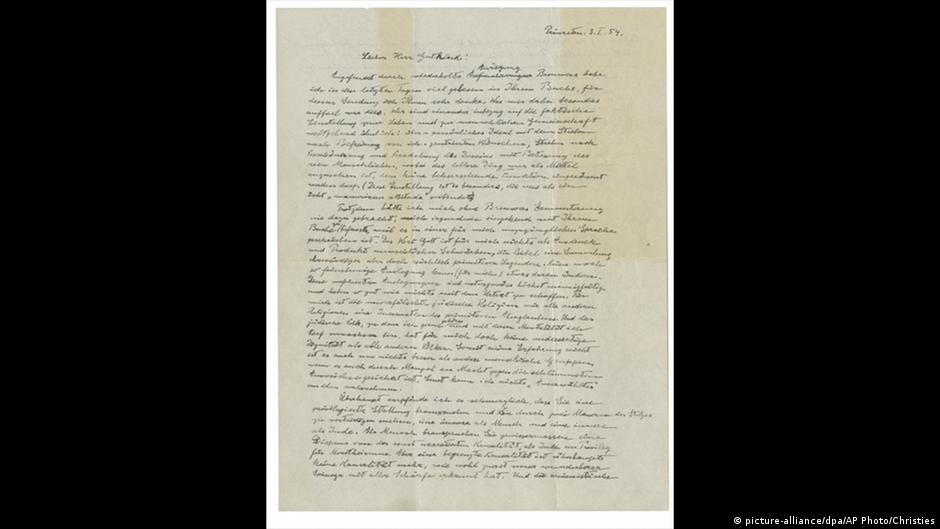 Princeton. 3. I. 54.
Lieber Herr Gutkind!
Anregung
Angefeuert durch wiederholte Brouwers habe
ich in den letzten Tagen viel gelesen in Ihrem Buche, für
dessen Sendung ich Ihnen sehr danke. Was mir dabei besonders
auffiel war dies. Wir sind einander inbezug auf die faktische
Einstellung zum Leben und zur menschlichen Gemeinschaft
weitgehend ähnlich: persönliches Ideal mit dem Streben
nach Befreiung von ich-zentrierten Wünschen, Streben nach
Verschönerung und Veredelung des Daseins mit Betonung des
rein Menschlichen, wobei das leblose Ding nur als Mittel
anzusehen ist, dem keine beherrschende Funktion eingeräumt
werden darf. (Diese Einstellung ist es besonders, die uns als ein
echt „unamerican attitude" verbindet)
Trotzdem hätte ich mich ohne Brouwers Ermunterung
nie dazu gebracht, mich irgendwie eingehend mit Ihrem
Buche zu befassen, weil es in einer für mich unzugänglichen Sprache
geschrieben ist. Das Wort Gott ist für mich nichts als Ausdruck
und Produkt menschlicher Schwächen, die Bibel eine Sammlung
ehrwürdiger aber doch reichlich primitiver Legenden. Keine noch
so feinsinnige Auslegung kann (für mich) etwas daran ändern.
Diese verfeinerten Auslegungen sind naturgemäss höchst mannigfaltig
und haben so gut wie nichts mit dem Urtext zu schaffen. Für
mich ist die unverfälschte jüdische Religion wie alle anderen
Religionen eine Incarnation des primitiven Aberglaubens. Und das
gehöre
jüdische Volk, zu dem ich gerne und mit dessen Mentalität ich
tief verwachsen bin, hat für mich doch keine andersartige
Dignität als alle anderen Völker. Soweit meine Erfahrung reicht
ist es auch um nichts besser als andere menschliche Gruppen,
wenn es auch durch Mangel an Macht gegen die schlimmsten
Auswüchse gesichert ist. Sonst kann ich nichts „Auserwähltes"
an ihm wahrnehmen.
Überhaupt empfinde ich es schmerzlich, dass Sie eine
privilegierte Stellung beanspruchen und sie durch zwei Mauern des Stolzes
zu verteidigen suchen, eine äussere als Mensch und eine innere
als Jude. Als Mensch beanspruchen Sie gewissermassen einen
Dispens von der sonst acceptierten Kausalität, als Jude ein Privileg
für Monotheismus. Aber eine begrenzte Kausalität ist überhaupt
keine Kausalität mehr, wie wohl zuerst unser wunderbarer
Spinoza mit aller Schärfe erkannt hat. Und die animistische
picture-alliance/dpa/AP Photo/Christies